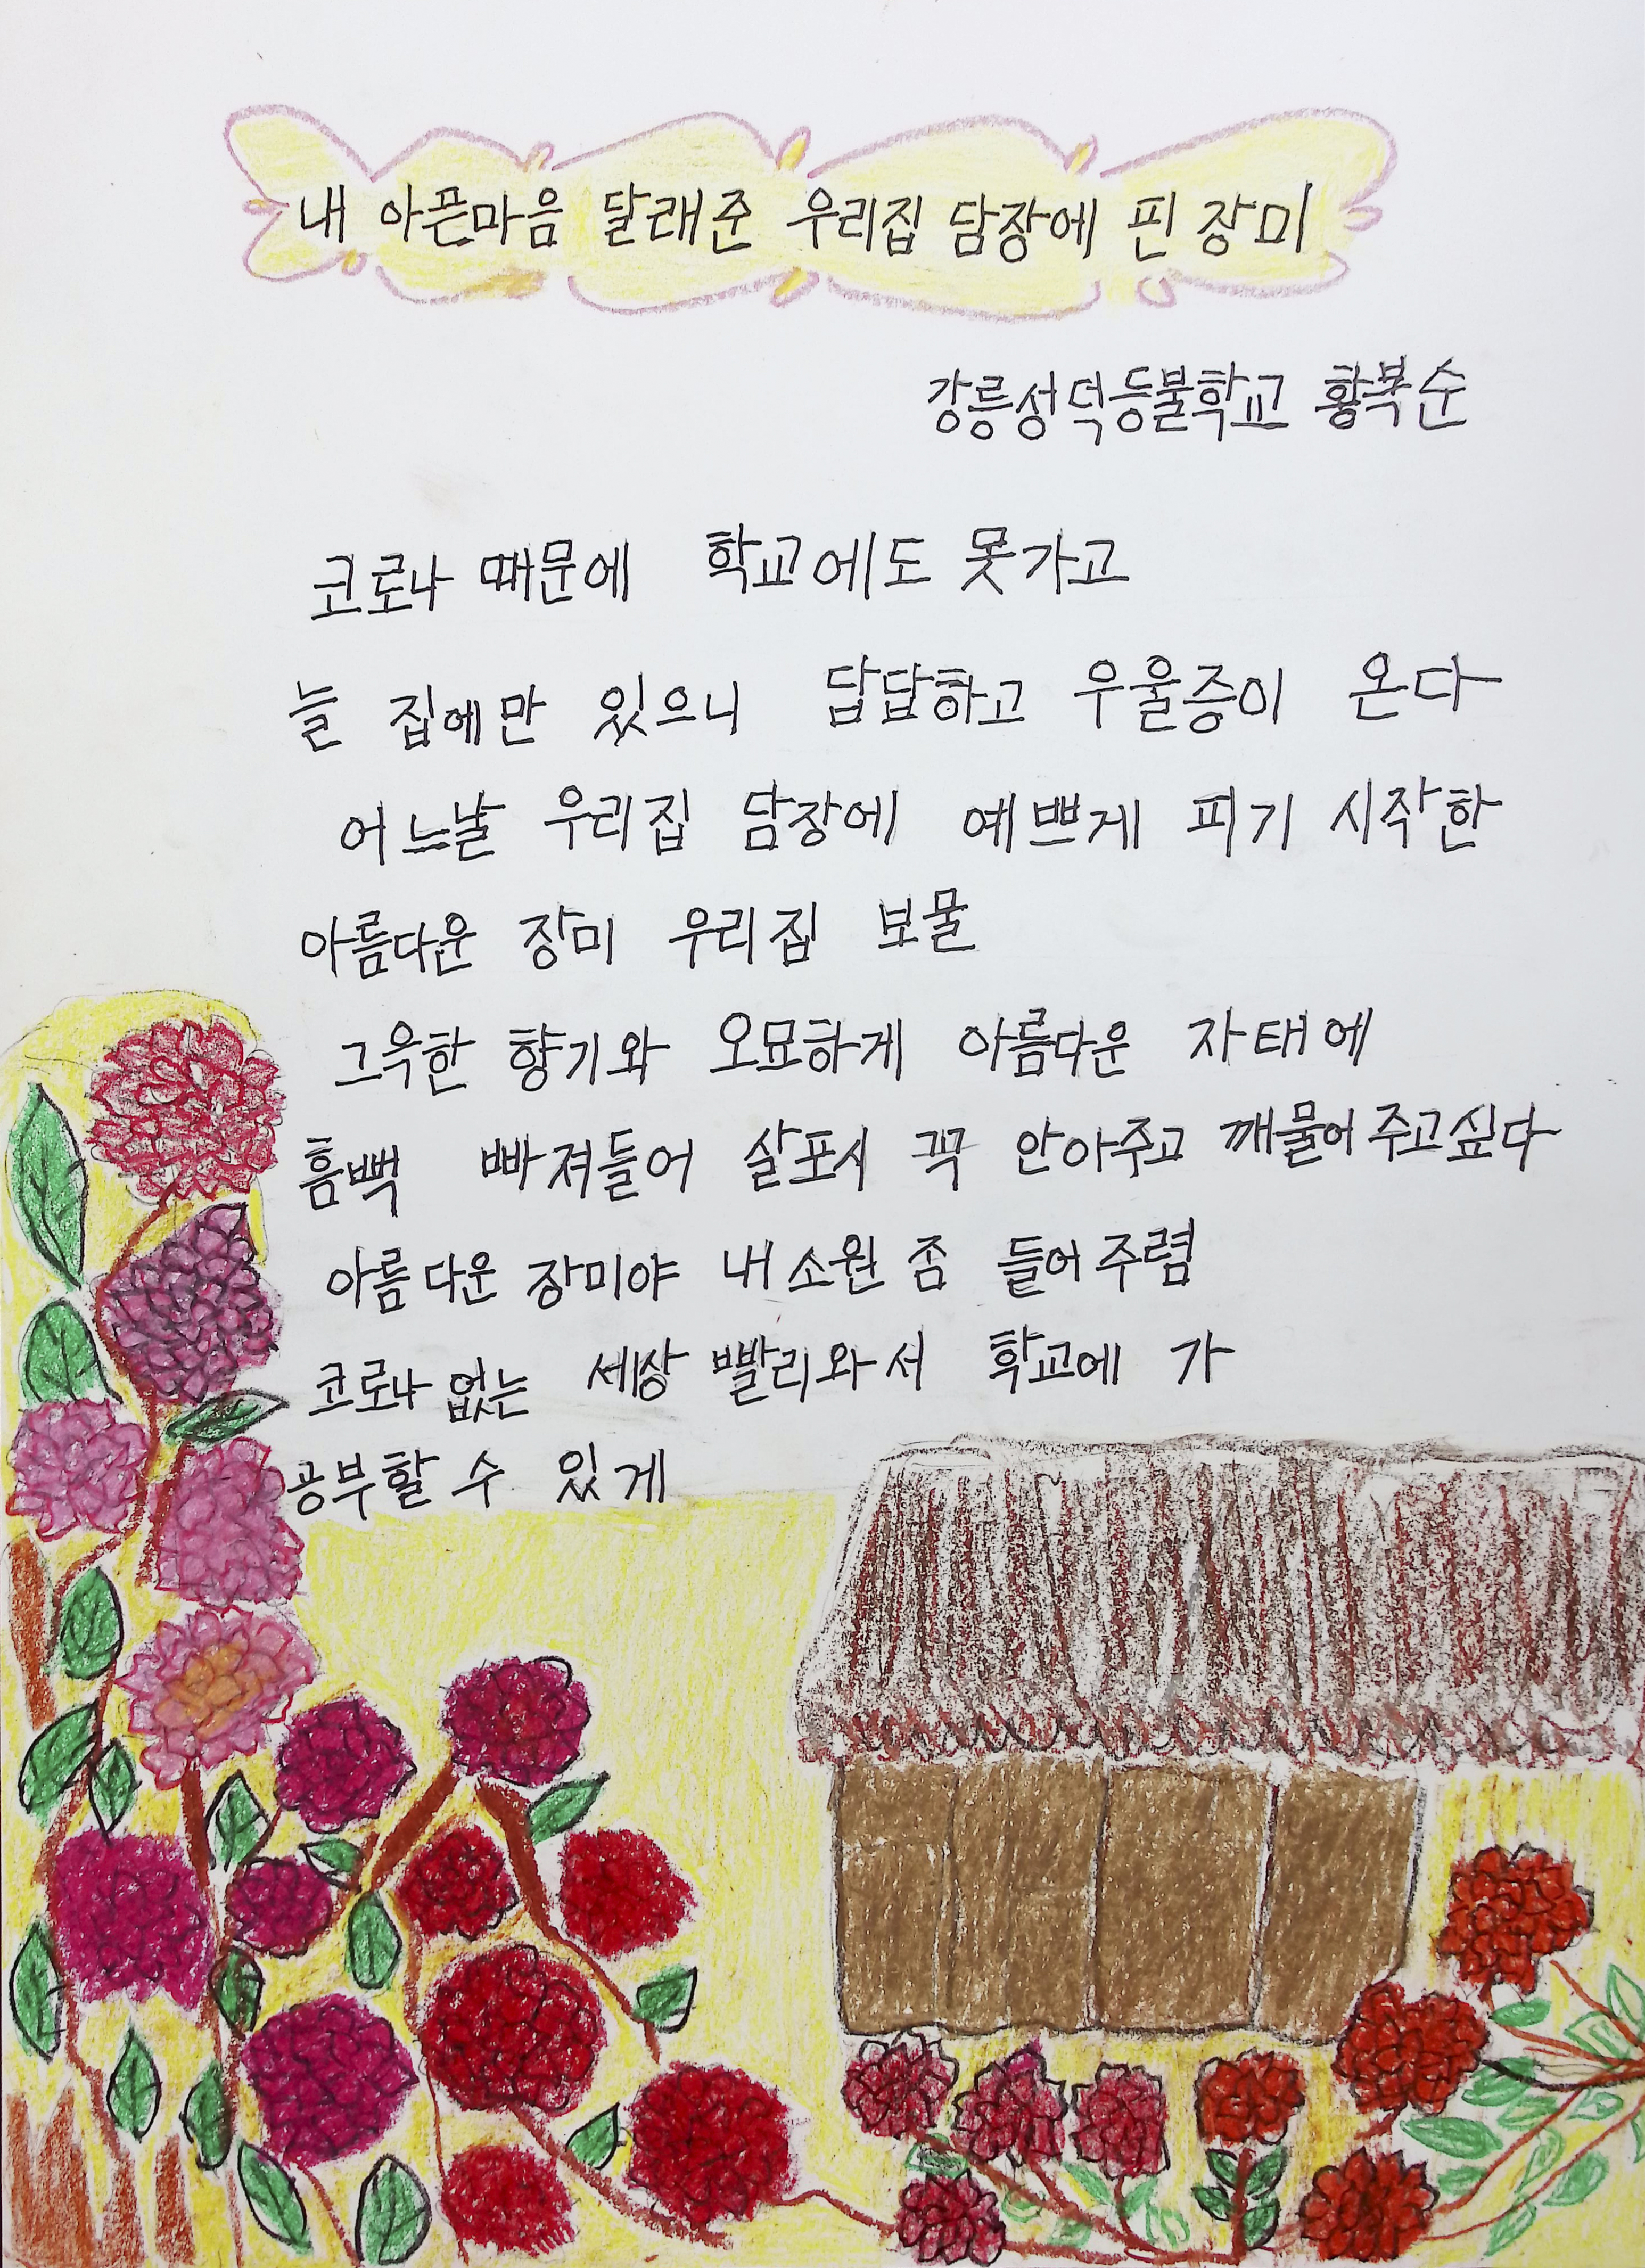 내 아픈마음 달래준 우리집 담장에 핀 장미
강릉성덕등불학교 황복순
코로나 때문에 학교에도 못가고
늘 집에만 있으니 답답하고 우울증이 온다
어느날 우리집 담장에 예쁘게 피기 시작한
아름다운 장미 우리집 보물
그윽한 향기와 오묘하게 아름다운 자태에
흠뻑 빠져들어 살포시 꼭 안아주고 깨물어 주고싶다
아름다운 장미야 내 소원 좀 들어주렴
코로나 없는 세상 빨리와서 학교에 가
공부할 수 있게